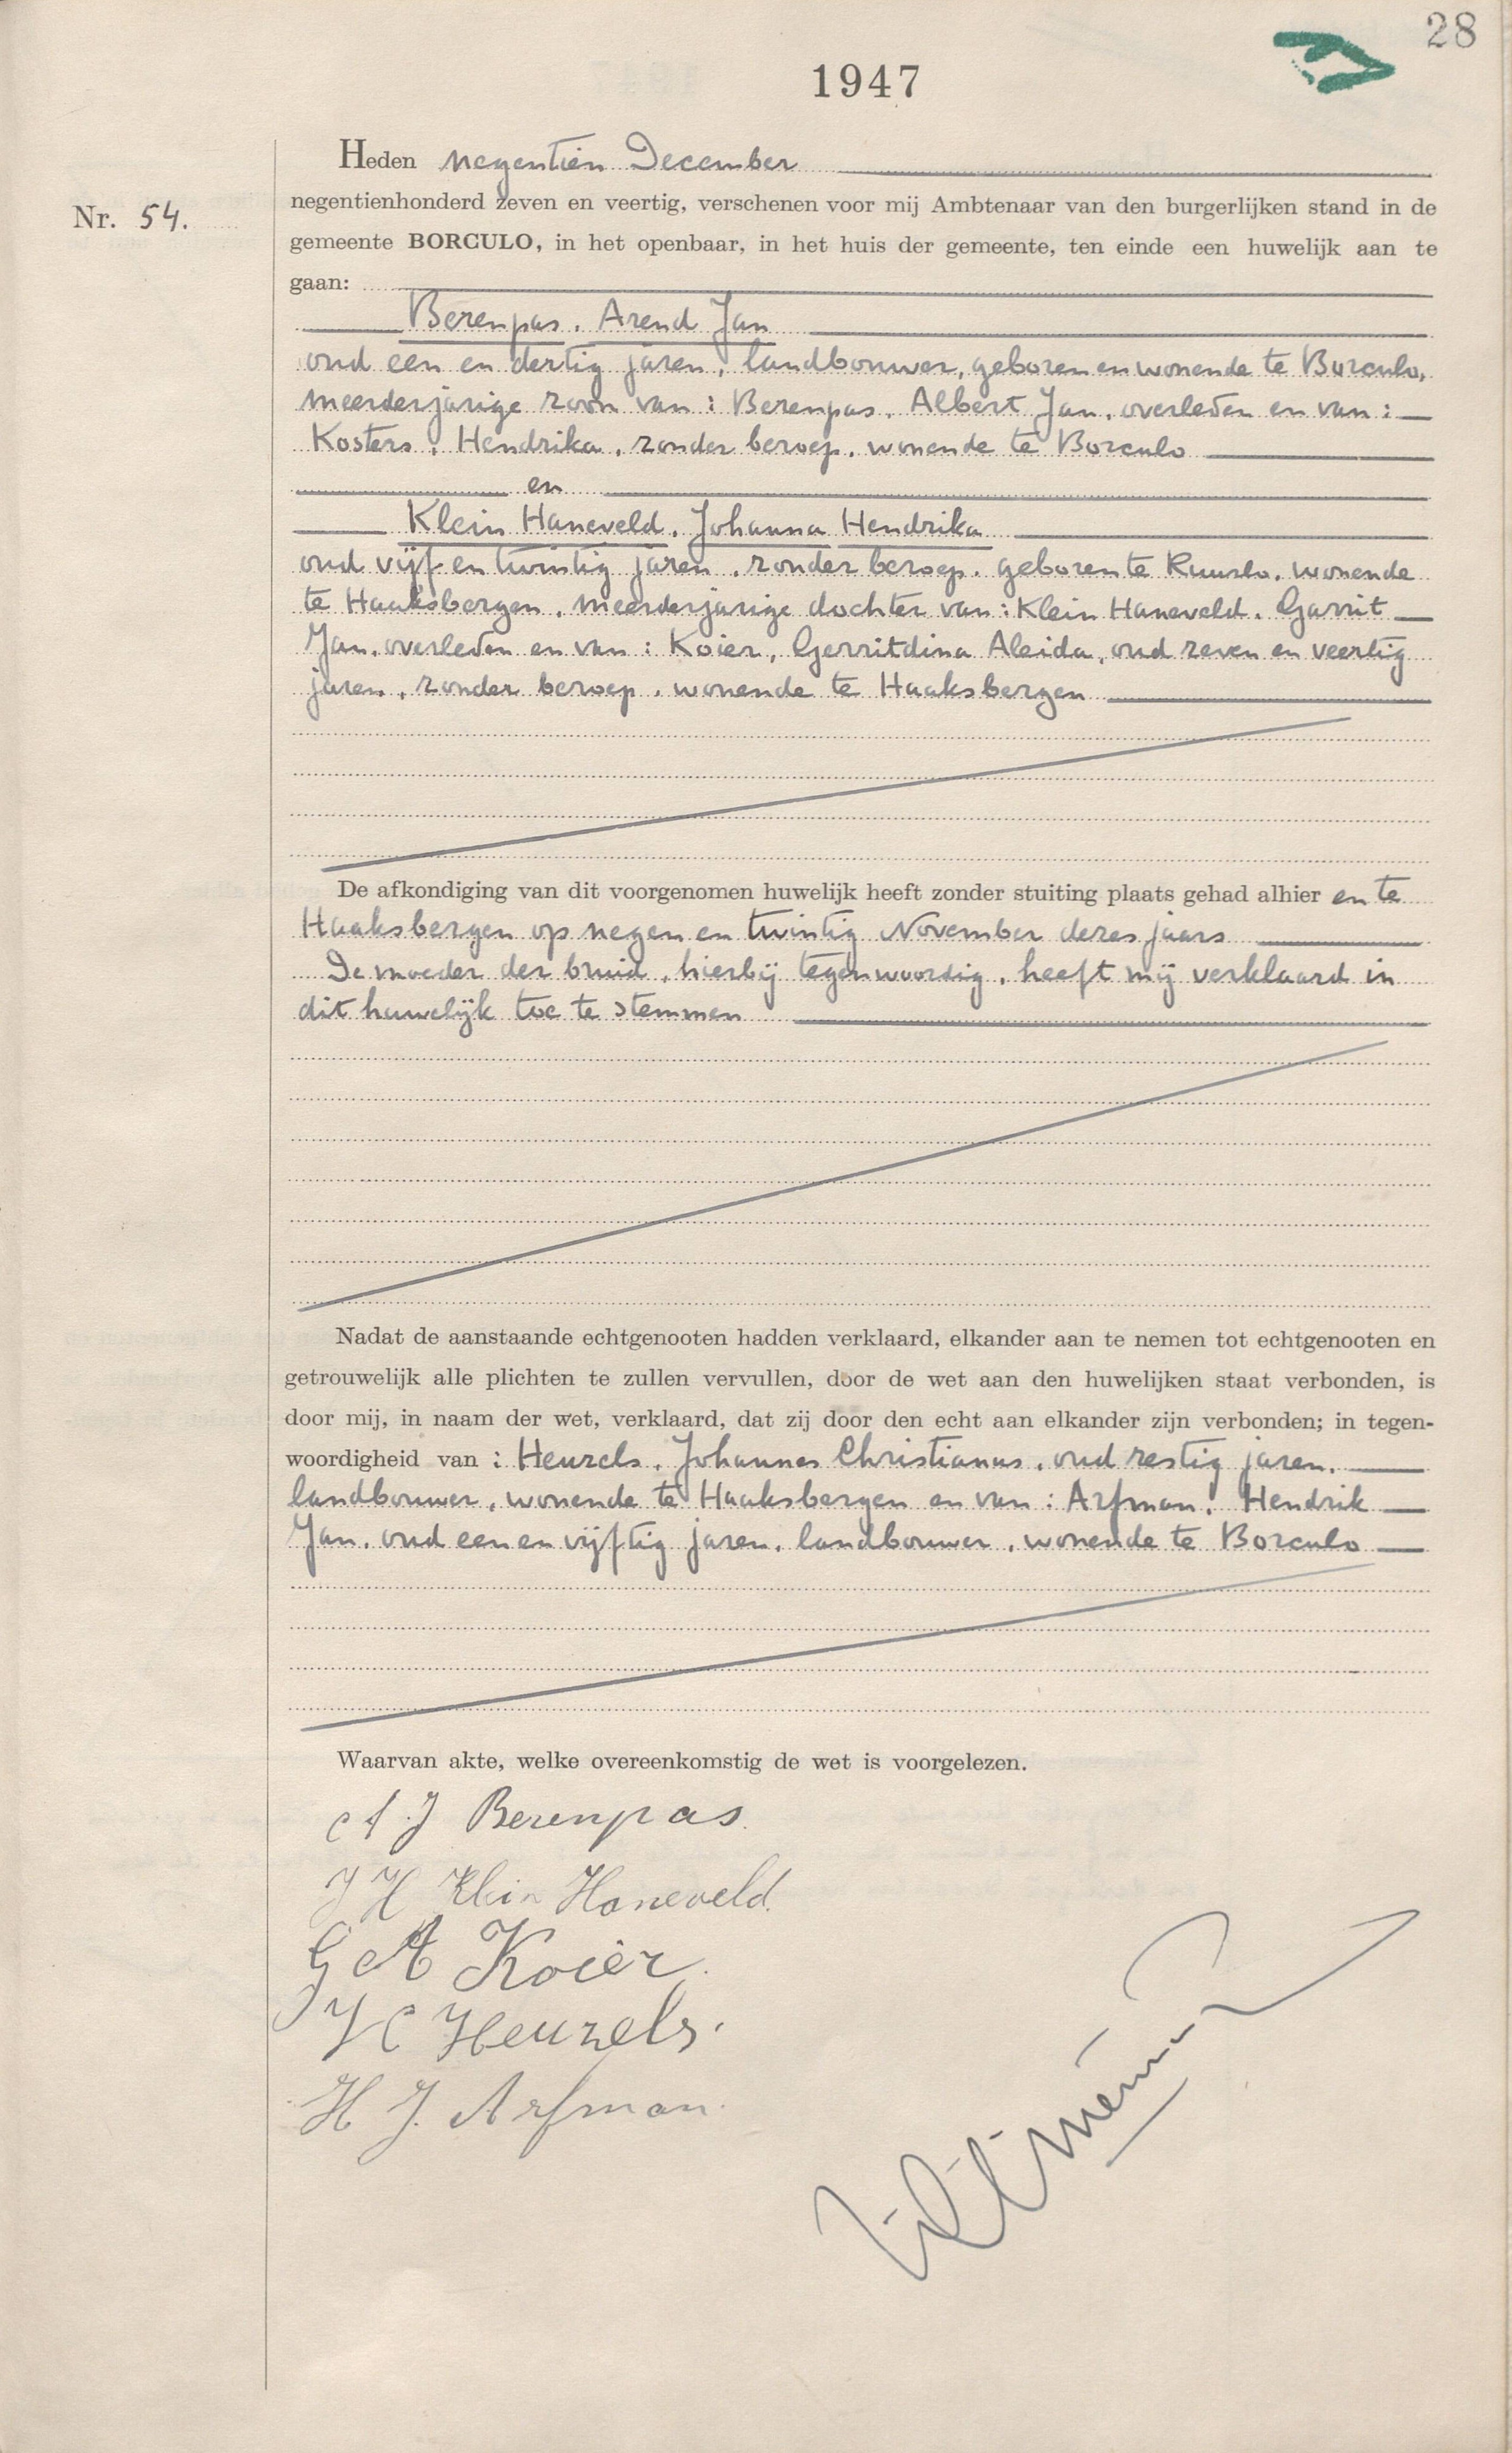 28
1947
Heden negentien December
Nr. 54.
negentienhonderd zeven en veertig, verschenen voor mij Ambtenaar van den burgerlijken stand in de
gemeente BORCULO, in het openbaar, in het huis der gemeente, ten einde een huwelijk aan te
gaan:
Berenpas, Arend Jan
oud een en dertig jaren, landbouwer, geboren en wonende te Borculo,
meerderjarige zoon van: Berenpas, Albert Jan, overleden en van:
Kosters, Hendrika, zonder beroep, wonende te Borculo
en
Klein Haneveld, Johanna Hendrika
oud vijf en twintig jaren, zonder beroep, geboren te Ruurlo, wonende
te Haaksbergen, meerderjarige dochter van: Klein Haneveld, Garrit
Jan, overleden en van: Koier, Gerritdina Aleida, oud zeven en veertig
jaren, zonder beroep, wonende te Haaksbergen
De afkondiging van dit voorgenomen huwelijk heeft zonder stuiting plaats gehad alhier en te
Haaksbergen op negen en twintig November dezes jaars
De moeder der bruid, hierbij tegenwoordig, heeft mij verklaard in
dit huwelijk toe te stemmen
Nadat de aanstaande echtgenooten hadden verklaard, elkander aan te nemen tot echtgenooten en
getrouwelijk alle plichten te zullen vervullen, door de wet aan den huwelijken staat verbonden, is
door mij, in naam der wet, verklaard, dat zij door den echt aan elkander zijn verbonden; in tegen-
woordigheid van: Heuzels, Johannes Christianus, oud zestig jaren,
landbouwer, wonende te Haaksbergen en van: Arfman, Hendrik
Jan, oud een en vijftig jaren, landbouwer, wonende te Borculo
Waarvan akte, welke overeenkomstig de wet is voorgelezen.
A J Berenpas.
J H Klein Haneveld.
G A Koier.
J C Heuzels.
H J. Arfman.